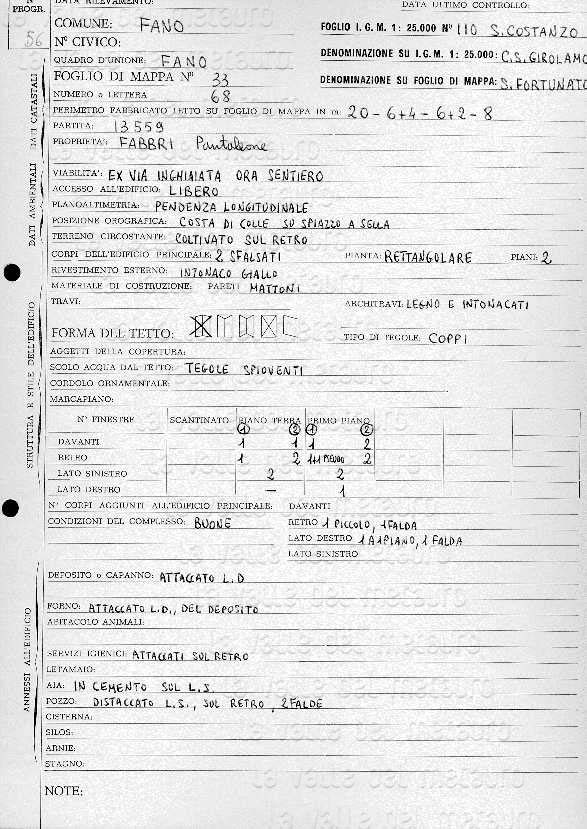 N° PROGR. 56
DATA RILEVAMENTO:
DATA ULTIMO CONTROLLO:
COMUNE: FANO
N° CIVICO:
FOGLIO I. G. M. 1: 25.000 N° 110 S. COSTANZO
DENOMINAZIONE SU I.G.M. 1: 25.000: C.S. GIROLAMO
DENOMINAZIONE SU FOGLIO DI MAPPA: S. FORTUNATO
DATI CATASTALI
QUADRO D'UNIONE: FANO
FOGLIO DI MAPPA N° 33
NUMERO o LETTERA 68
PERIMETRO FABBRICATO LETTO SU FOGLIO DI MAPPA IN m: 20-6+4-6+2-8
PARTITA: 13559
PROPRIETA': FABBRI Pantaleone
DATI AMBIENTALI
VIABILITA': EX VIA INGHIAIATA ORA SENTIERO
ACCESSO ALL'EDIFICIO: LIBERO
PLANOALTIMETRIA: PENDENZA LONGITUDINALE
POSIZIONE OROGRAFICA: COSTA DI COLLE SU SPIAZZO A SELLA
TERRENO CIRCOSTANTE: COLTIVATO SUL RETRO
STRUTTURA E STILE DELL'EDIFICIO
CORPI DELL'EDIFICIO PRINCIPALE: 2 SFALSATI PIANTA: RETTANGOLARE PIANI: 2
RIVESTIMENTO ESTERNO: INTONACO GIALLO
MATERIALE DI COSTRUZIONE: PARETI MATTONI
TRAVI: ARCHITRAVI: LEGNO E INTONACATI
FORMA DEL TETTO: TIPO DI TEGOLE: COPPI
AGGETTI DELLA COPERTURA:
SCOLO ACQUA DAL TETTO: TEGOLE SPIOVENTI
CORDOLO ORNAMENTALE:
MARCAPIANO:
N° FINESTRE SCANTINATO PIANO TERRA PRIMO PIANO
1 2 1 2
DAVANTI 1 1 1 2
RETRO 1 2 1+1 PSEUDO 2
LATO SINISTRO 2 2
LATO DESTRO — 1
N° CORPI AGGIUNTI ALL'EDIFICIO PRINCIPALE: DAVANTI
CONDIZIONI DEL COMPLESSO: BUONE RETRO 1 PICCOLO, 1 FALDA
LATO DESTRO 1 A 1 PIANO, 1 FALDA
LATO SINISTRO
ANNESSI ALL'EDIFICIO
DEPOSITO o CAPANNO: ATTACCATO L.D
FORNO: ATTACCATO L.D., DEL DEPOSITO
ABITACOLO ANIMALI:
SERVIZI IGIENICI: ATTACCATI SUL RETRO
LETAMAIO:
AIA: IN CEMENTO SUL L.S.
POZZO: DISTACCATO L.S., SUL RETRO, 2 FALDE
CISTERNA:
SILOS:
ARNIE:
STAGNO:
NOTE:
la valle del metauro